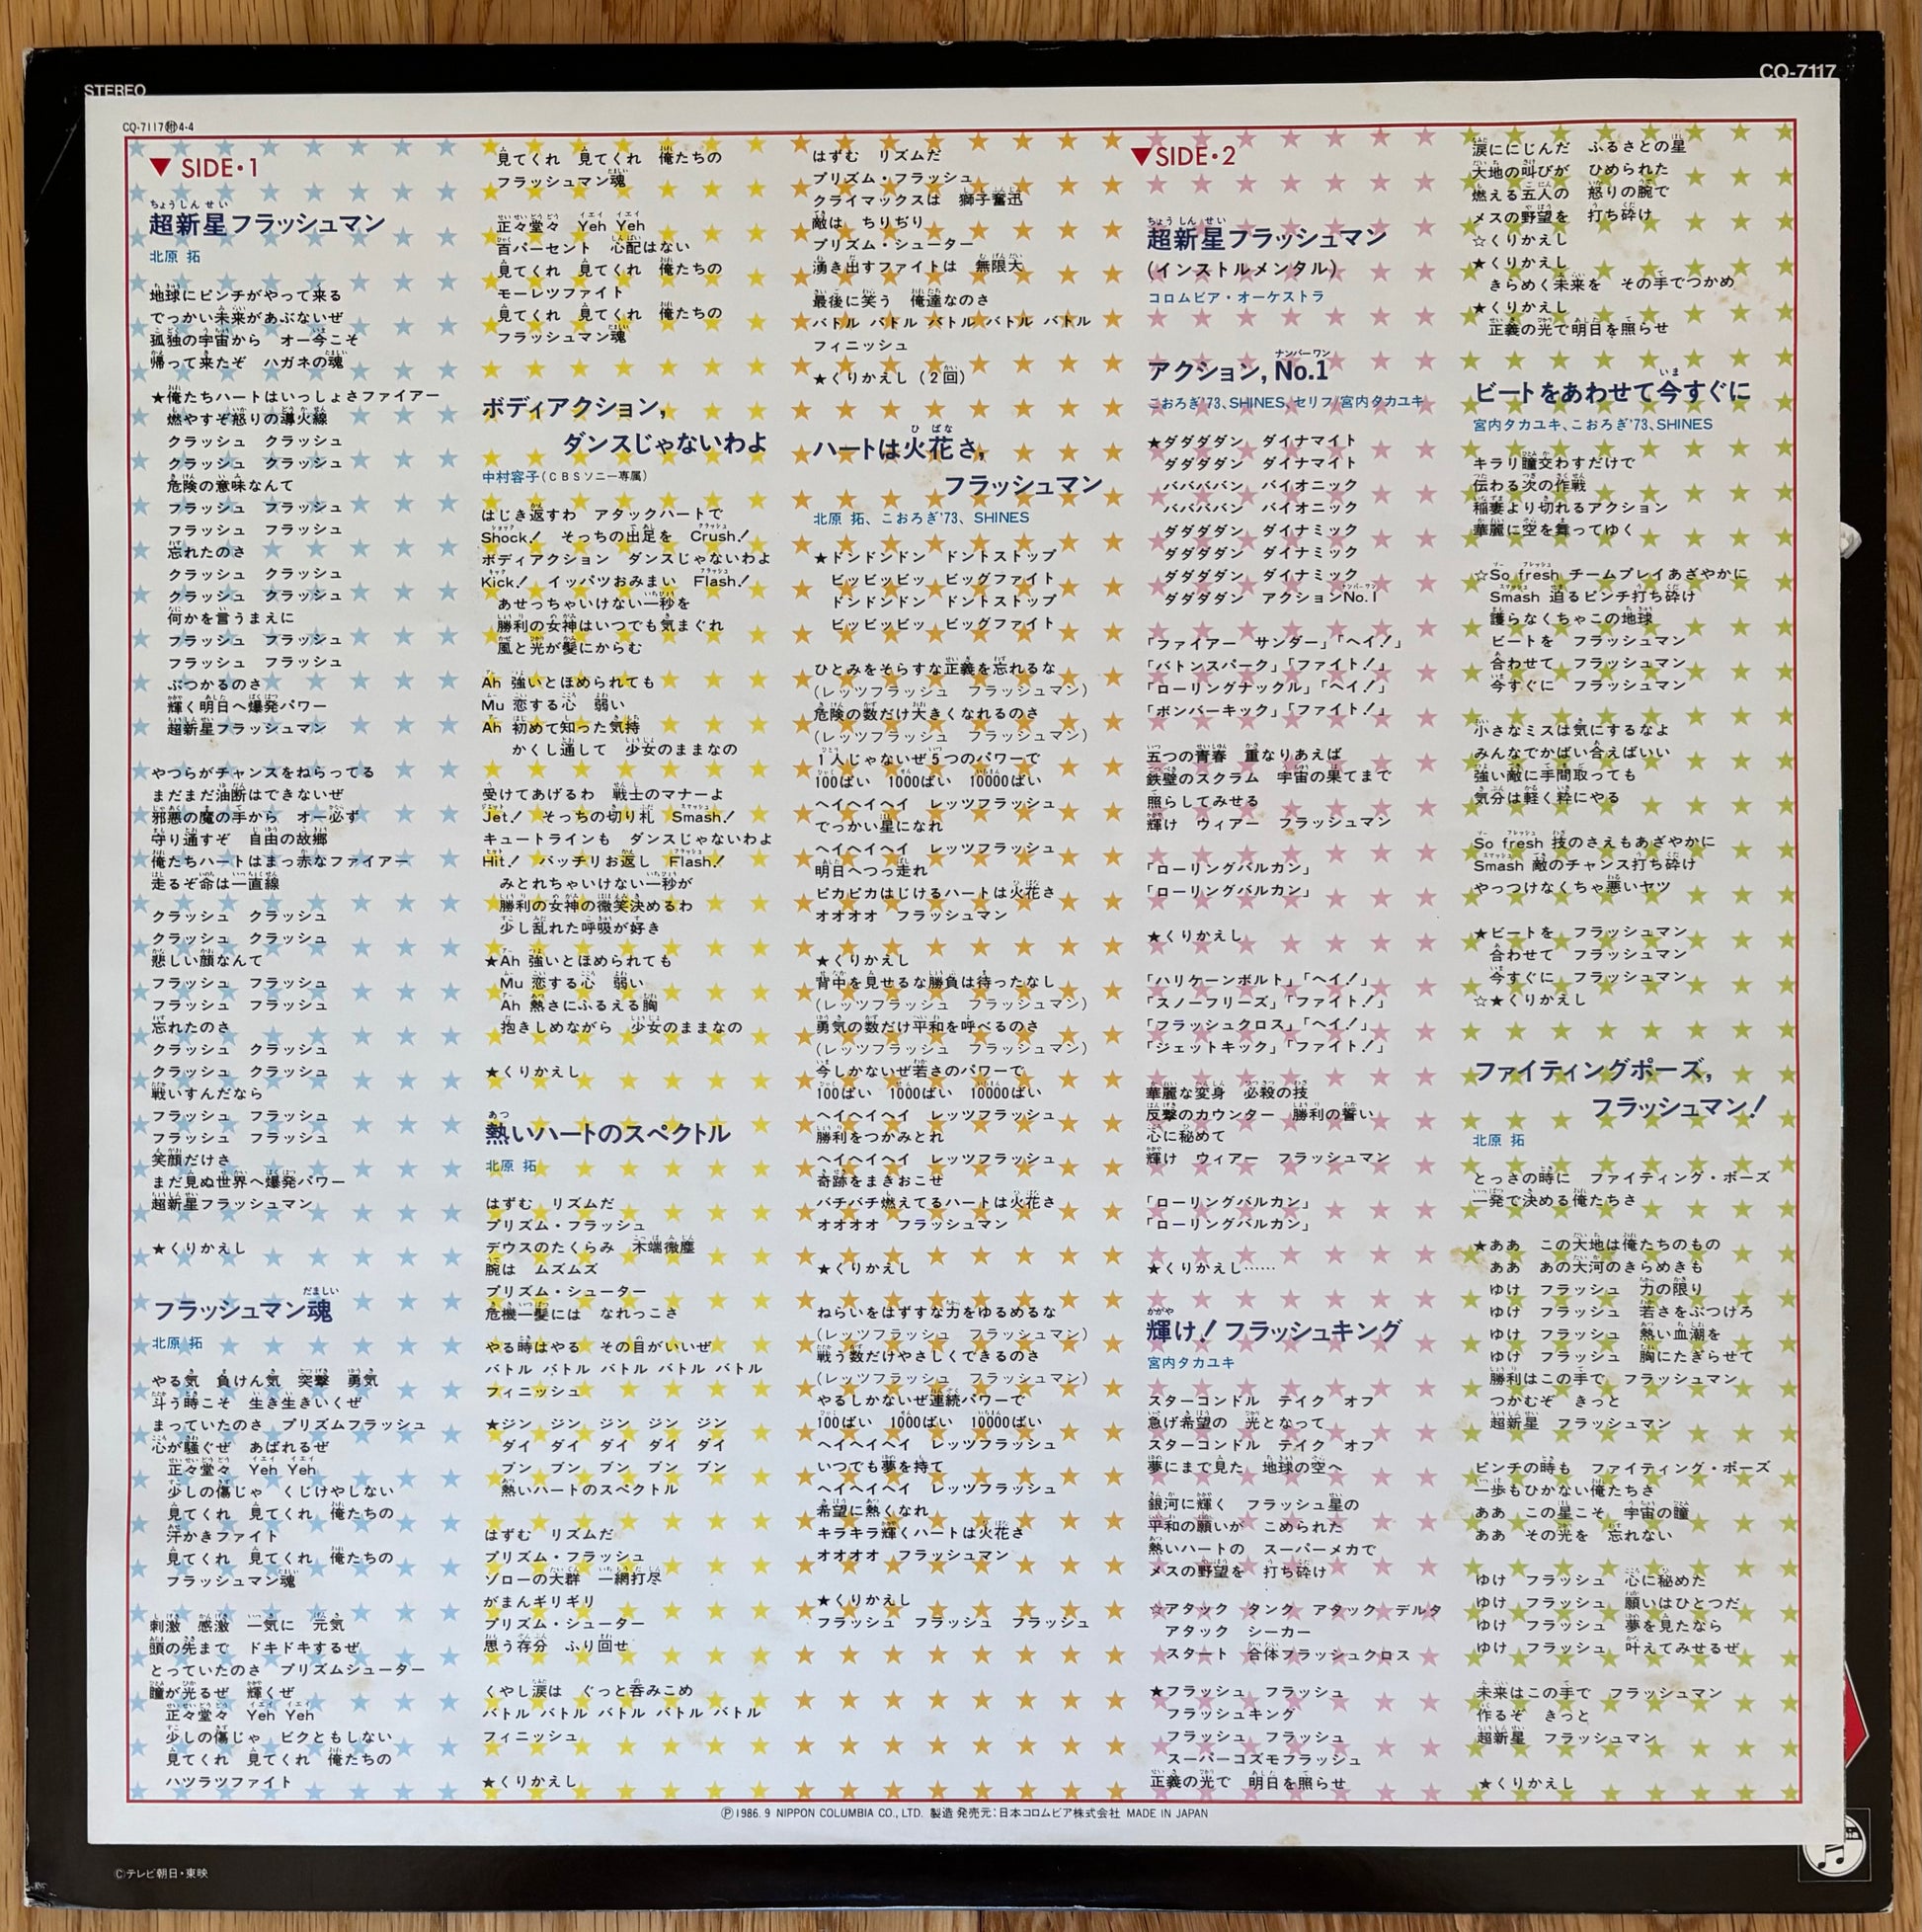 STEREO
CQ-7117
CQ-7117㊞4-4
▼SIDE・1
超新星フラッシュマン
北原 拓
地球にピンチがやって来る
でっかい未来があぶないぜ
孤独の宇宙から オー今こそ
帰って来たぞ ハガネの魂
★俺たちハートはいっしょさファイアー
燃やすぞ怒りの導火線
クラッシュ クラッシュ
クラッシュ クラッシュ
危険の意味なんて
フラッシュ フラッシュ
フラッシュ フラッシュ
忘れたのさ
クラッシュ クラッシュ
クラッシュ クラッシュ
何かを言うまえに
フラッシュ フラッシュ
フラッシュ フラッシュ
ぶつかるのさ
輝く明日へ爆発パワー
超新星フラッシュマン
やつらがチャンスをねらってる
まだまだ油断はできないぜ
邪悪の魔の手から オー必ず
守り通すぞ 自由の故郷
俺たちハートはまっ赤なファイアー
走るぞ命は一直線
クラッシュ クラッシュ
クラッシュ クラッシュ
悲しい顔なんて
フラッシュ フラッシュ
フラッシュ フラッシュ
忘れたのさ
クラッシュ クラッシュ
クラッシュ クラッシュ
戦いすんだなら
フラッシュ フラッシュ
フラッシュ フラッシュ
笑顔だけさ
まだ見ぬ世界へ爆発パワー
超新星フラッシュマン
★くりかえし
フラッシュマン魂
北原 拓
やる気 負けん気 突撃 勇気
斗う時こそ 生き生きいくぜ
まっていたのさ プリズムフラッシュ
心が騒ぐぜ あばれるぜ
正々堂々 Yeh Yeh
少しの傷じゃ くじけやしない
見てくれ 見てくれ 俺たちの
汗かきファイト
見てくれ 見てくれ 俺たちの
フラッシュマン魂
刺激 感激 一気に 元気
頭の先まで ドキドキするぜ
とっていたのさ プリズムシューター
瞳が光るぜ 輝くぜ
正々堂々 Yeh Yeh
少しの傷じゃ ビクともしない
見てくれ 見てくれ 俺たちの
ハツラツファイト
見てくれ 見てくれ 俺たちの
フラッシュマン魂
正々堂々 Yeh Yeh
百パーセント 心配はない
見てくれ 見てくれ 俺たちの
モーレツファイト
見てくれ 見てくれ 俺たちの
フラッシュマン魂
ボディアクション,
ダンスじゃないわよ
中村容子(CBSソニー専属)
はじき返すわ アタックハートで
Shock! そっちの出足を Crush!
ボディアクション ダンスじゃないわよ
Kick! イッパツおみまい Flash!
あせっちゃいけない一秒を
勝利の女神はいつでも気まぐれ
風と光が髪にからむ
Ah 強いとほめられても
Mu 恋する心 弱い
Ah 初めて知った気持
かくし通して 少女のままなの
受けてあげるわ 戦士のマナーよ
Jet! そっちの切り札 Smash!
キュートラインも ダンスじゃないわよ
Hit! バッチリお返し Flash!
みとれちゃいけない一秒が
勝利の女神の微笑決めるわ
少し乱れた呼吸が好き
★Ah 強いとほめられても
Mu 恋する心 弱い
Ah 熱さにふるえる胸
抱きしめながら 少女のままなの
★くりかえし
熱いハートのスペクトル
北原 拓
はずむ リズムだ
プリズム・フラッシュ
デウスのたくらみ 木端微塵
腕は ムズムズ
プリズム・シューター
危機一髪には なれっこさ
やる時はやる その目がいいぜ
バトル バトル バトル バトル バトル
フィニッシュ
★ジン ジン ジン ジン ジン
ダイ ダイ ダイ ダイ ダイ
ブン ブン ブン ブン ブン
熱いハートのスペクトル
はずむ リズムだ
プリズム・フラッシュ
ゾローの大群 一網打尽
がまんギリギリ
プリズム・シューター
思う存分 ふり回せ
くやし涙は ぐっと呑みこめ
バトル バトル バトル バトル バトル
フィニッシュ
★くりかえし
はずむ リズムだ
プリズム・フラッシュ
クライマックスは 獅子奮迅
敵は ちりぢり
プリズム・シューター
湧き出すファイトは 無限大
最後に笑う 俺達なのさ
バトル バトル バトル バトル バトル
フィニッシュ
★くりかえし(2回)
ハートは火花さ,
フラッシュマン
北原 拓、こおろぎ'73、SHINES
★ドンドンドン ドントストップ
ビッビッビッ ビッグファイト
ドンドンドン ドントストップ
ビッビッビッ ビッグファイト
ひとみをそらすな正義を忘れるな
(レッツフラッシュ フラッシュマン)
危険の数だけ大きくなれるのさ
(レッツフラッシュ フラッシュマン)
1人じゃないぜ5つのパワーで
100ばい 1000ばい 10000ばい
ヘイヘイヘイ レッツフラッシュ
でっかい星になれ
ヘイヘイヘイ レッツフラッシュ
明日へつっ走れ
ピカピカはじけるハートは火花さ
オオオオ フラッシュマン
★くりかえし
背中を見せるな勝負は待ったなし
(レッツフラッシュ フラッシュマン)
勇気の数だけ平和を呼べるのさ
(レッツフラッシュ フラッシュマン)
今しかないぜ若さのパワーで
100ばい 1000ばい 10000ばい
ヘイヘイヘイ レッツフラッシュ
勝利をつかみとれ
ヘイヘイヘイ レッツフラッシュ
奇跡をまきおこせ
バチバチ燃えてるハートは火花さ
オオオオ フラッシュマン
★くりかえし
ねらいをはずすな力をゆるめるな
(レッツフラッシュ フラッシュマン)
戦う数だけやさしくできるのさ
(レッツフラッシュ フラッシュマン)
やるしかないぜ連続パワーで
100ばい 1000ばい 10000ばい
ヘイヘイヘイ レッツフラッシュ
いつでも夢を持て
ヘイヘイヘイ レッツフラッシュ
希望に熱くなれ
キラキラ輝くハートは火花さ
オオオオ フラッシュマン
★くりかえし
フラッシュ フラッシュ フラッシュ
▼SIDE・2
超新星フラッシュマン
(インストルメンタル)
コロムビア・オーケストラ
アクション, No.1
こおろぎ'73、SHINES、セリフ/宮内タカユキ
★ダダダダン ダイナマイト
ダダダダン ダイナマイト
ババババン バイオニック
ババババン バイオニック
ダダダダン ダイナミック
ダダダダン ダイナミック
ダダダダン ダイナミック
ダダダダン アクションNo.1
「ファイアー サンダー」「ヘイ!」
「バトンスパーク」「ファイト!」
「ローリングナックル」「ヘイ!」
「ボンバーキック」「ファイト!」
五つの青春 重なりあえば
鉄壁のスクラム 宇宙の果てまで
照らしてみせる
輝け ウィアー フラッシュマン
「ローリングバルカン」
「ローリングバルカン」
★くりかえし
「ハリケーンボルト」「ヘイ!」
「スノーフリーズ」「ファイト!」
「フラッシュクロス」「ヘイ!」
「ジェットキック」「ファイト!」
華麗な変身 必殺の技
反撃のカウンター 勝利の誓い
心に秘めて
輝け ウィアー フラッシュマン
「ローリングバルカン」
「ローリングバルカン」
★くりかえし……
輝け! フラッシュキング
宮内タカユキ
スターコンドル テイク オフ
急げ希望の 光となって
スターコンドル テイク オフ
夢にまで見た 地球の空へ
銀河に輝く フラッシュ星の
平和の願いが こめられた
熱いハートの スーパーメカで
メスの野望を 打ち砕け
☆アタック タンク アタック デルタ
アタック シーカー
スタート 合体フラッシュクロス
★フラッシュ フラッシュ
フラッシュキング
フラッシュ フラッシュ
スーパーコズモフラッシュ
正義の光で 明日を照らせ
涙ににじんだ ふるさとの星
大地の叫びが ひめられた
燃える五人の 怒りの腕で
メスの野望を 打ち砕け
☆くりかえし
★くりかえし
きらめく未来を その手でつかめ
★くりかえし
正義の光で明日を照らせ
ビートをあわせて今すぐに
宮内タカユキ、こおろぎ'73、SHINES
キラリ瞳交わすだけで
伝わる次の作戦
稲妻より切れるアクション
華麗に空を舞ってゆく
☆So fresh チームプレイあざやかに
Smash 迫るピンチ打ち砕け
護らなくちゃこの地球
ビートを フラッシュマン
合わせて フラッシュマン
今すぐに フラッシュマン
小さなミスは気にするなよ
みんなでかばい合えばいい
強い敵に手間取っても
気分は軽く粋にやる
So fresh 技のさえもあざやかに
Smash 敵のチャンス打ち砕け
やっつけなくちゃ悪いヤツ
★ビートを フラッシュマン
合わせて フラッシュマン
今すぐに フラッシュマン
☆★くりかえし
ファイティングポーズ,
フラッシュマン!
北原 拓
とっさの時に ファイティング・ポーズ
一発で決める俺たちさ
★ああ この大地は俺たちのもの
ああ あの大河のきらめきも
ゆけ フラッシュ 力の限り
ゆけ フラッシュ 若さをぶつけろ
ゆけ フラッシュ 熱い血潮を
ゆけ フラッシュ 胸にたぎらせて
勝利はこの手で フラッシュマン
つかむぞ きっと
超新星 フラッシュマン
ピンチの時も ファイティング・ポーズ
一歩もひかない俺たちさ
ああ この星こそ 宇宙の瞳
ああ その光を 忘れない
ゆけ フラッシュ 心に秘めた
ゆけ フラッシュ 願いはひとつだ
ゆけ フラッシュ 夢を見たなら
ゆけ フラッシュ 叶えてみせるぜ
未来はこの手で フラッシュマン
作るぞ きっと
超新星 フラッシュマン
★くりかえし
Ⓟ1986. 9 NIPPON COLUMBIA CO., LTD. 製造発売元:日本コロムビア株式会社 MADE IN JAPAN
©テレビ朝日・東映